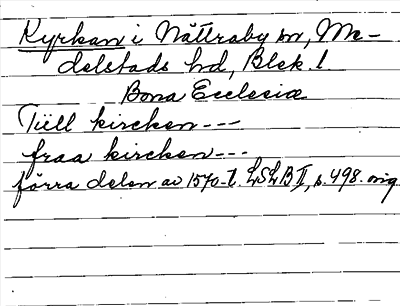 Kyrkan i Nättraby sn, Me-
delstads hd, Blek. l.
Bona Ecclesiæ
Tiill kircken ---
fraa kircken ---
förra delen av 1570-t. LSLB II, s. 498. orig